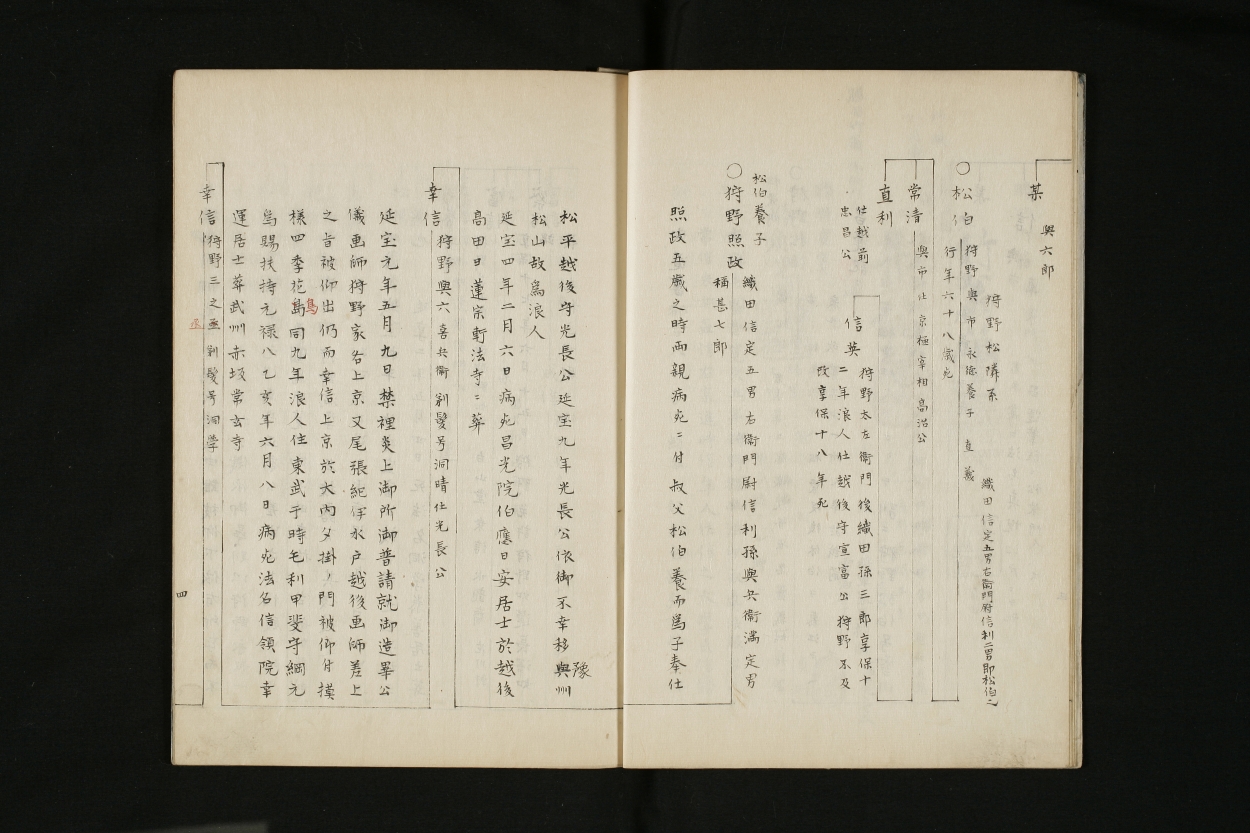 某
與六郎
狩野松隣系
織田信定五男右衛門尉信利二男即松伯之
○松伯
狩野與市永徳養子 直義
行年六十八歳死
常清
與市仕京極宰相高治公
直利
仕越前
忠昌公
信英
狩野太左衛門後織田孫三郎享保十
二年浪人仕越後守宣富公狩野不及
改享保十八年死
松伯養子
○狩野照政
織田信定五男右衛門尉信利孫與兵衛満定男
稱甚七郎
照政五歳之時両親病死ニ付叔父松伯養而為子奉仕
松平越後守光長公延宝九年光長公依御不幸移與州
豫
松山故為浪人
延宝四年二月六日病死昌光院伯應日安居士於越後
高田日蓮宗新法寺ニ葬
幸信
狩野與六喜兵衛剃髪号洞晴仕光長公
延宝元年五月九日禁裡炎上御所御普請就御造畢公
儀画師狩野家名上京又尾張紀伊水戸越後画師差上
之旨被仰出仍而幸信上京於大内夕掛ノ門被仰付摸
様四季花島同九年浪人住東武于時毛利甲斐守綱元
鳥
為賜扶持元禄八乙亥年六月八日病死法名信領院幸
運居士葬武州赤坂常玄寺
幸信
狩野三之丞剃髪号洞学
丞
四